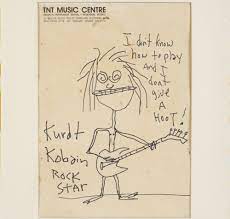 TNT MUSIC CENTRE
I don't know
how to play
And I
don't
give
A
HOOT!
Kurdt
Kobain
ROCK
STAR